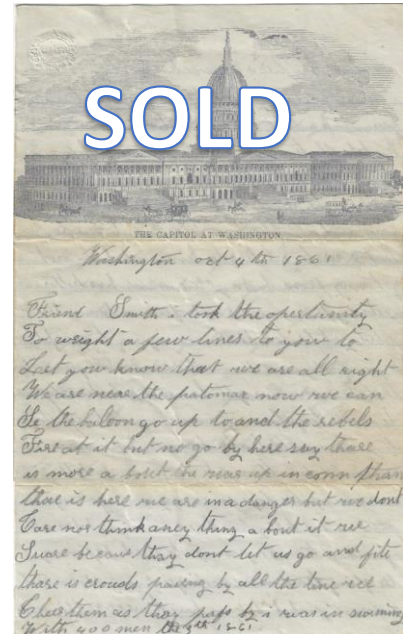 SOLD
THE CAPITOL AT WASHINGTON
Washington oct 4th 1861
Friend Smith i took the opertinity
To weight a few lines to you to
Let you know that we are all right
We are near the patomac now we can
Se the baloon go up to and the rebels
Fire at it but no go by here say thare
is more a bout the war up in conn than
thare is here we are in a danger but we dont
Care nor think aney thing a bout it we
Sware because thay dont let us go and fite
thare is crouds pasing by all the time we
Chear them as thay pass by i was in swiming
With 400 men the 3th 1861